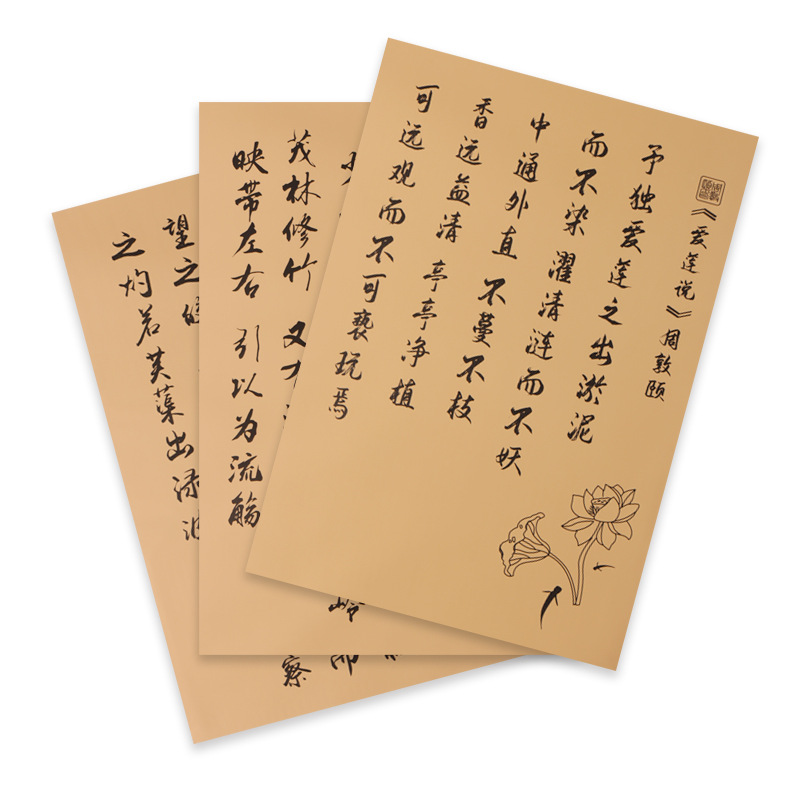 《爱莲说》周敦颐
予独爱莲之出淤泥
而不染 濯清涟而不妖
中通外直 不蔓不枝
香远益清 亭亭净植
可远观而不可亵玩焉
茂林修竹 又
映带左右 引以为流觞
察
望之
之 灼若芙蕖出渌